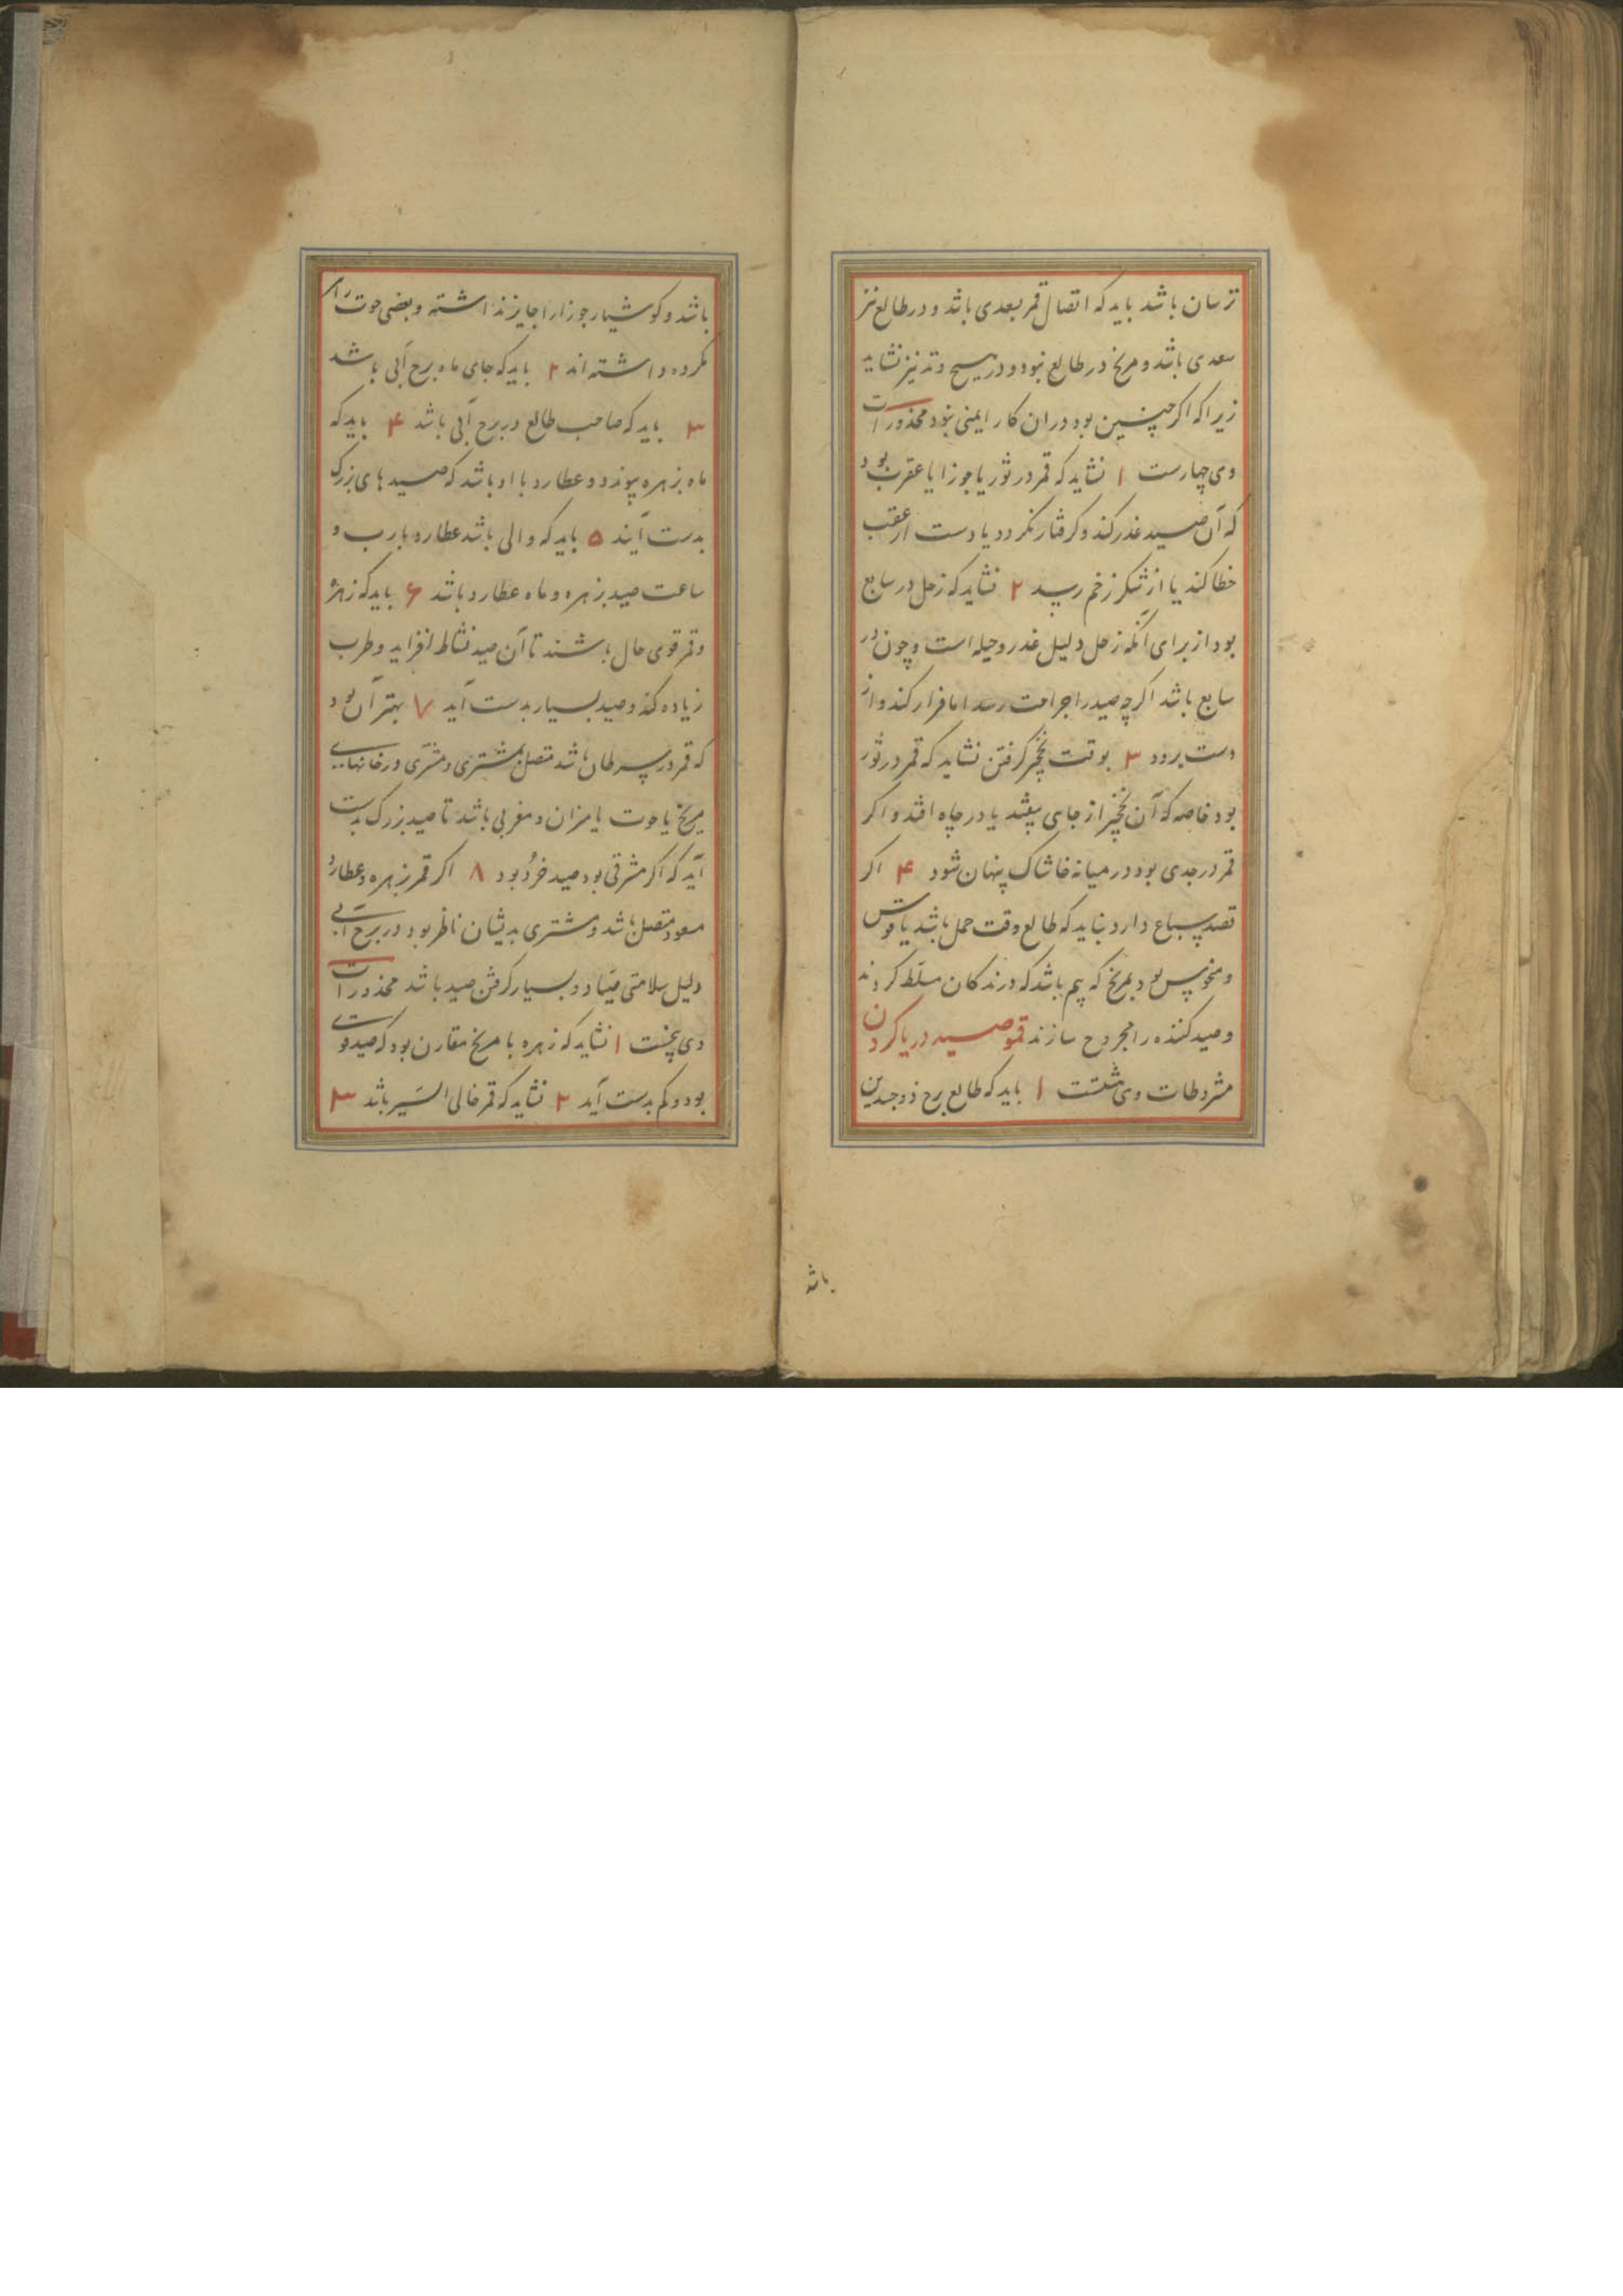 ترسان باشد باید که اتصال قمر بسعدی باشد و در طالع نیز
سعدی باشد و مریخ در طالع نبود و در هیچ وتد نیز نشاید
زیرا که اکر چنین بود در ان کار ایمنی نبود محذورات
وی چهارست ۱ نشاید که قمر در ثور یا جوزا یا عقرب بود
که آن صید غدر کند و کرفتار نکردد یا دست از عقب
خطا کند یا از شکر زخم رسد ۲ نشاید که زحل در سابع
بود از برای آنکه زحل دلیل غدر و حیله است و چون در
سابع باشد اکرچه صید را جراحت رسد اما فرار کند و از
دست برود ۳ بوقت نخچیر کرفتن نشاید که قمر در ثور
بود خاصه که آن نخچیر از جای بیفتد یا در چاه افتد و اکر
قمر در جدی بود در میانه خاشاک پنهان شود ۴ اکر
قصد سباع دارد نباید که طالع وقت حمل باشد یا قوس
و منحوس بود بمریخ که بیم باشد که درندکان مسلط کردند
و صید کننده را مجروح سازند قمو صید دریا کردن
مشروطات وی هشتست ۱ باید که طالع برج ذوجسدین
باشد
باشد و کوشیار جوزا را جایز نداشته و بعضی حوت را
مکروه داشته اند ۲ باید که جای ماه برج آبی باشد
۳ باید که صاحب طالع در برج آبی باشد ۴ باید که
ماه بزهره پیوندد و عطارد با او باشد که صیدهای بزرک
بدست آیند ۵ باید که والی باشد عطارد بارب و
ساعت صید بزهره و ماه عطارد باشد ۶ باید که زهره
و قمر قوی حال باشند تا آن صید نشاط افزاید و طرب
زیاده کند و صید بسیار بدست آید ۷ بهتر آن بود
که قمر در سرطان باشد متصل بمشتری و مشتری در خانهای
مریخ یا حوت یا میزان و مغربی باشد تا صید بزرک بدست
آید که اکر مشرقی بود صید خرد بود ۸ اکر قمر بزهره و عطارد
مسعود متصل باشد و مشتری بدیشان ناظر بود در برج آبی
دلیل سلامتی صیاد و بسیار کرفتن صید باشد محذورات
وی پنجست ۱ نشاید که زهره با مریخ مقارن بود که صید فوت
بود و کم بدست آید ۲ نشاید که قمر خالی السیر باشد ۳